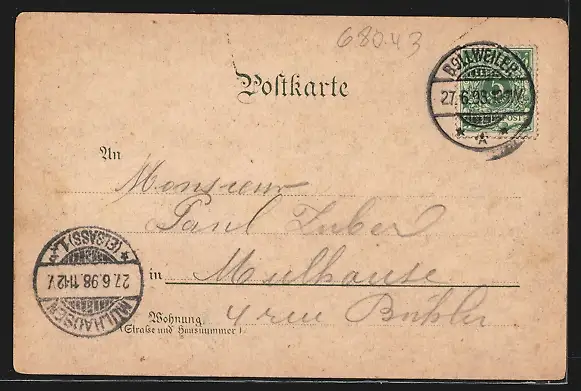 680.43
Postkarte
BOLLWEILER
27.6.98
* A *
An
Monsieur
Paul Zuber
in Mulhouse
Wohnung
(Straße und Hausnummer)
4 rue Bühler
MÜLHAUSEN
27.6.98 11-12V
* (ELSASS) 1. *